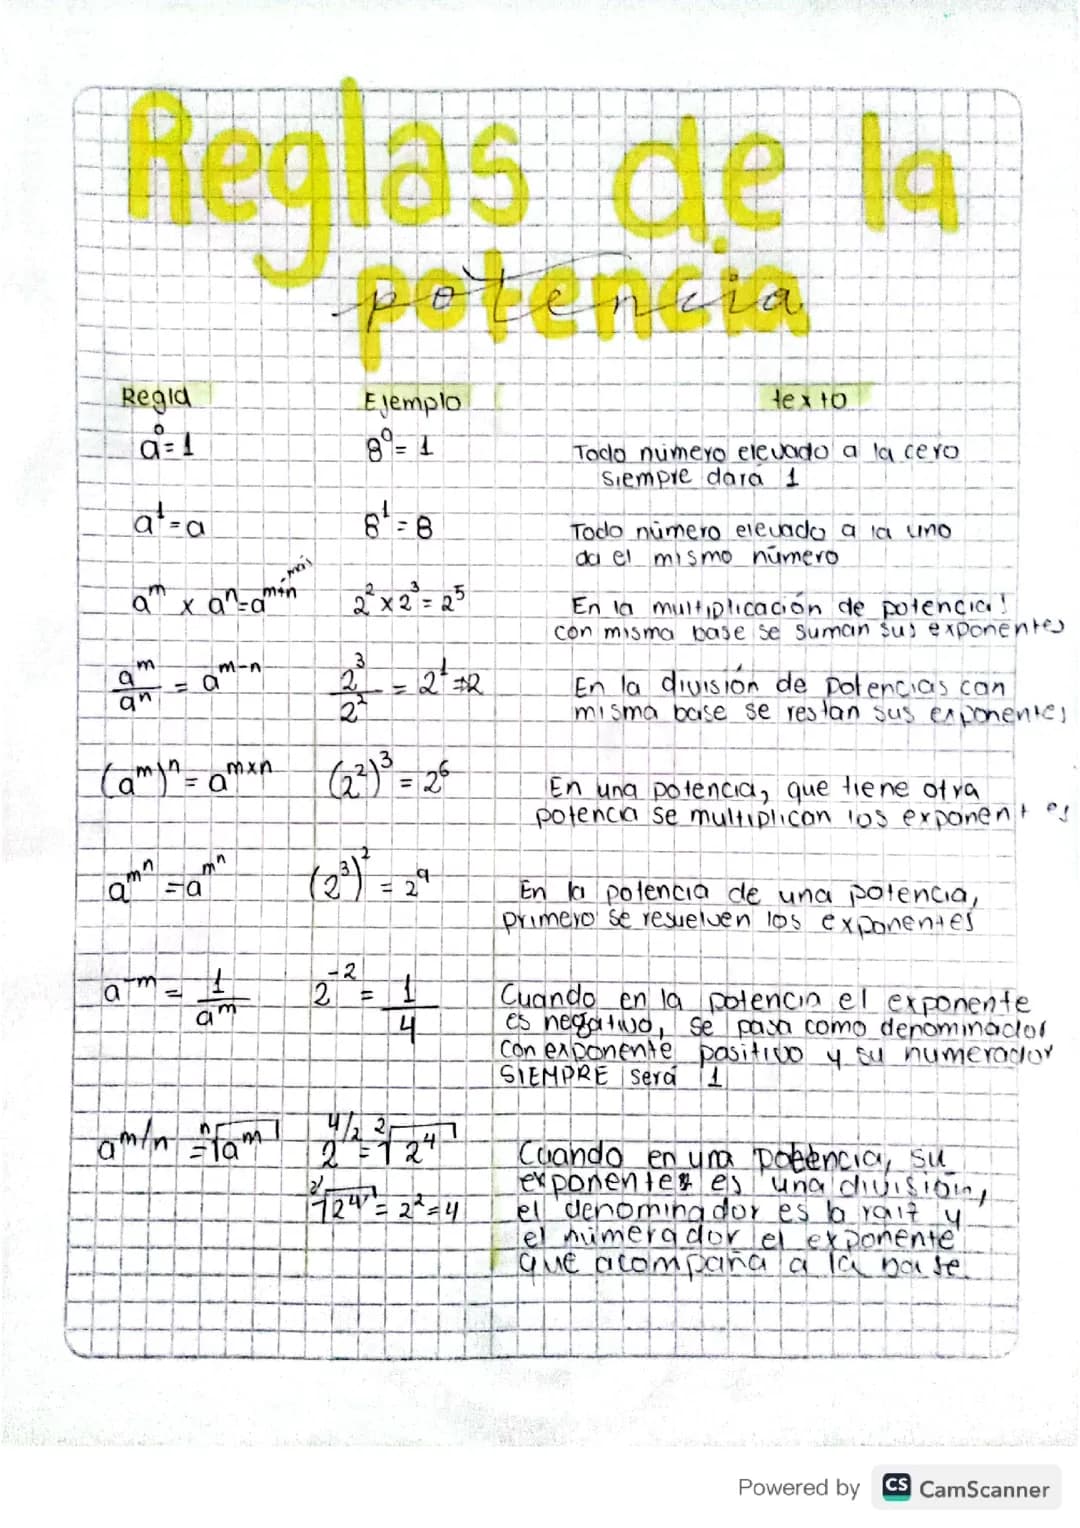 Reglas de la
potencia
Regla Ejemplo texto
a⁰=1 8⁰=1 Todo número elevado a la cero
siempre dará 1
a¹=a 8¹=8 Todo número elevado a la uno
da el mismo número
más
aᵐ x aⁿ=aᵐ⁺ⁿ 2²x2³=2⁵ En la multiplicación de potencias
con misma base se suman sus exponentes
aᵐ/aⁿ = aᵐ⁻ⁿ 2³/2² = 2¹⇒2 En la división de potencias con
misma base se restan sus exponentes
(aᵐ)ⁿ=aᵐˣⁿ (2²)³=2⁶ En una potencia, que tiene otra
potencia se multiplican los exponentes
a^m^n =a^m^n (2³)²=2⁹ En la potencia de una potencia,
primero se resuelven los exponentes
a⁻ᵐ = 1/aᵐ 2⁻² = 1/4 Cuando en la potencia el exponente
es negativo, se pasa como denominador
con exponente positivo y su numerador
SIEMPRE será 1
a^m/n =ⁿ√aᵐ 2^4/2=²√2⁴ Cuando en una potencia, su
exponente es una división,
²√2⁴=2²=4 el denominador es la raíz y
el númerador el exponente
que acompaña a la base.
Powered by CS CamScanner